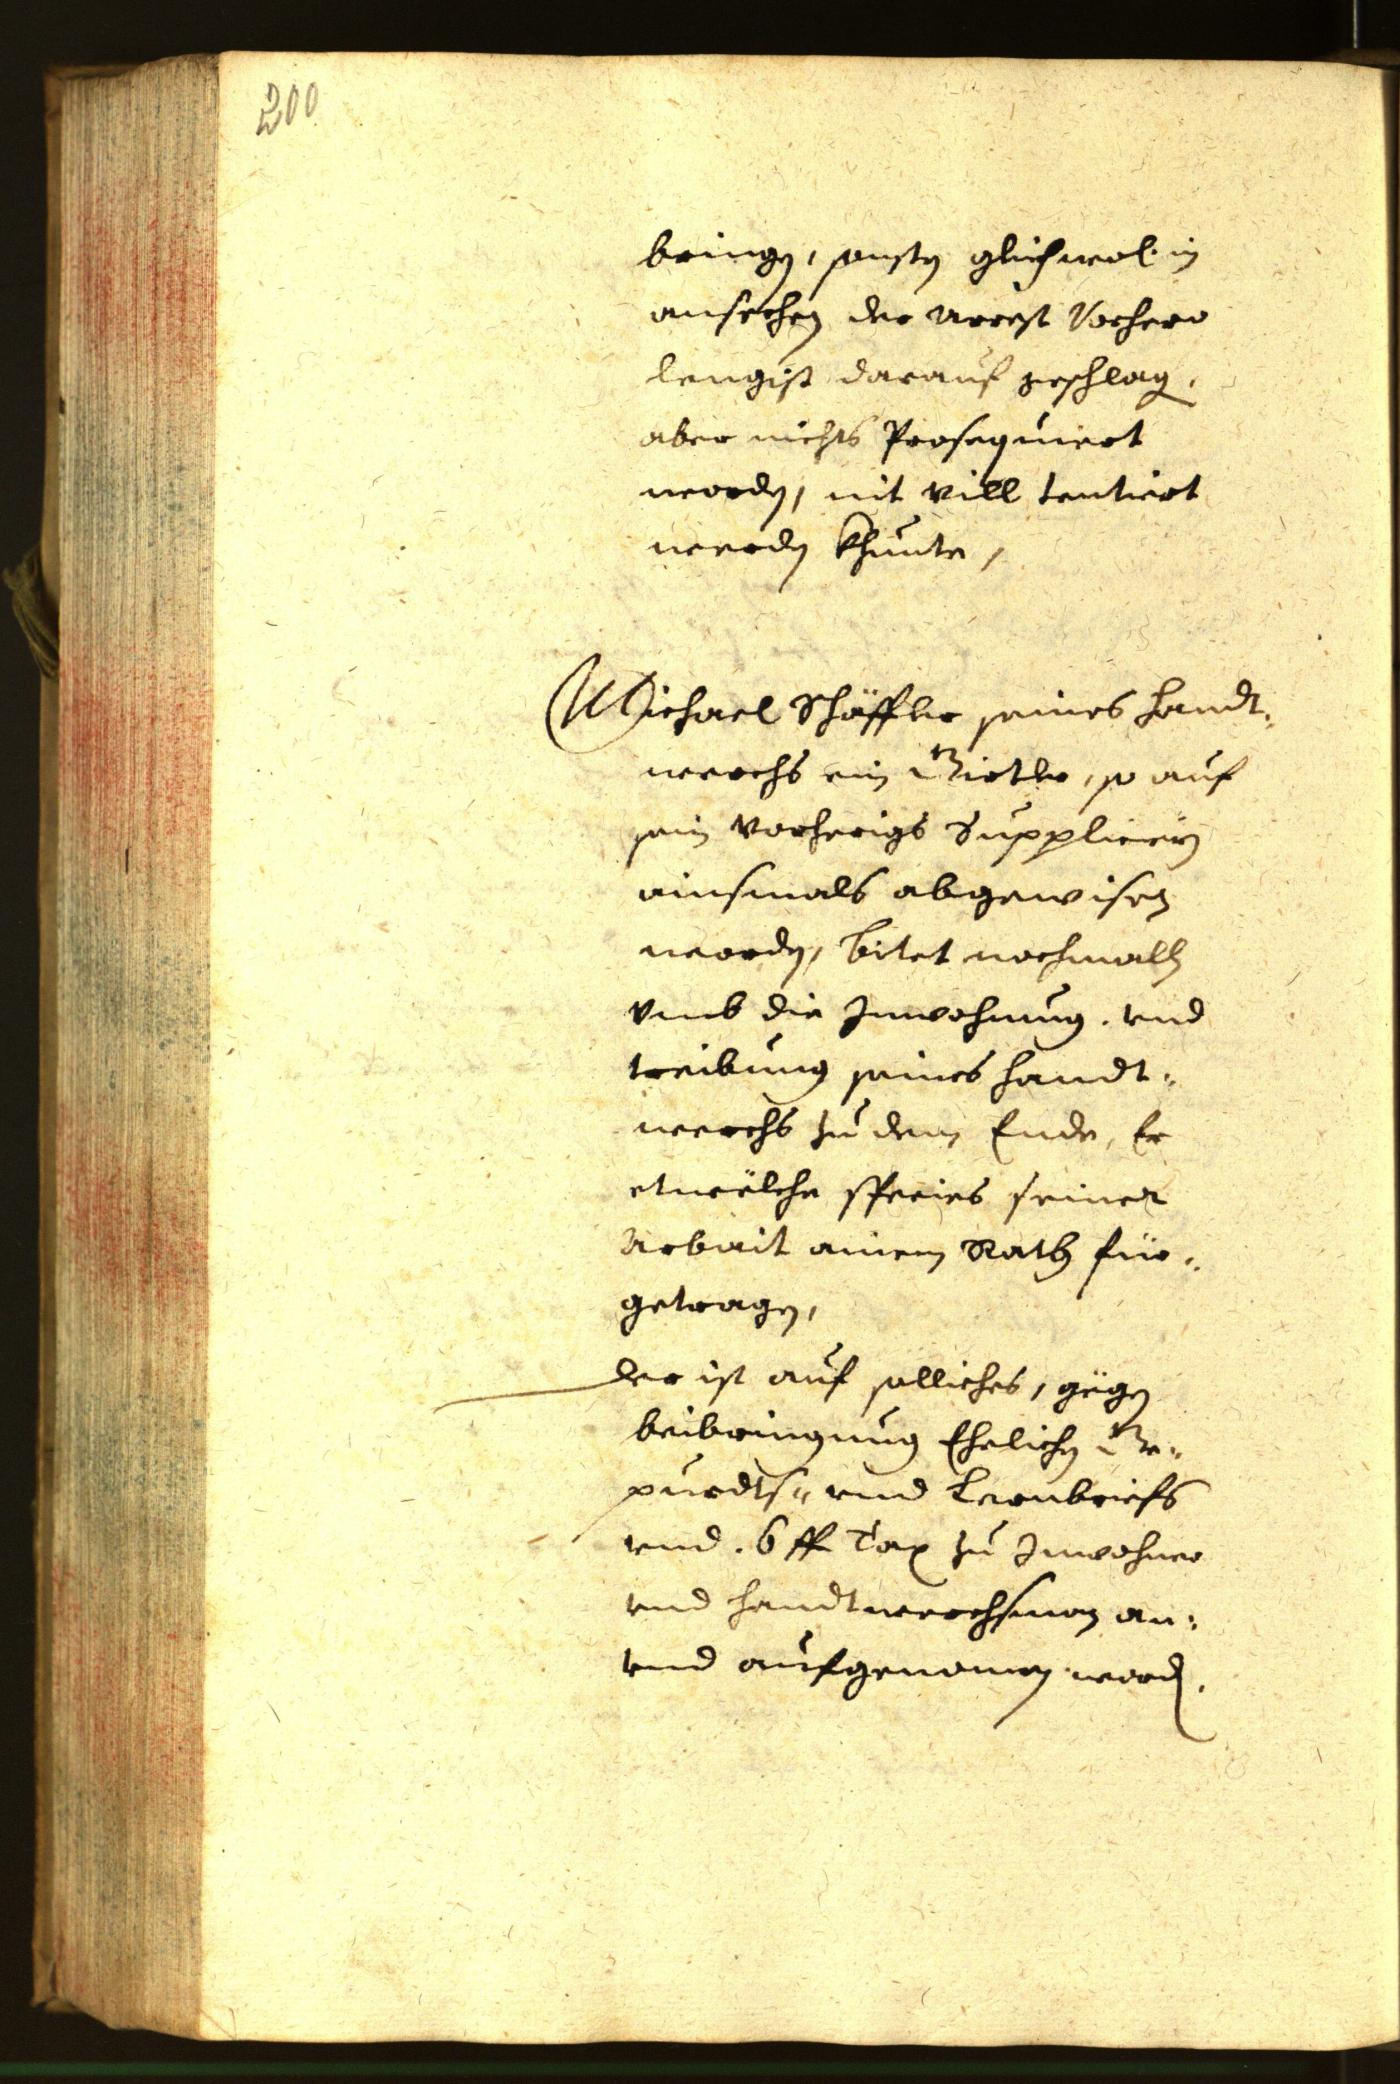 200
bringen, sonsten gleichwol in
ansechen der Arrest Vorhero
lengist darauf geschlagen,
aber nichts Prosequiert
worden, nit vill tentiert
werden khunte,
Michael Schäffler seines Handt¬
werchs ein Girtler, so auf
sein vorheriges Supplicieren
ainsmals abgewisen
worden, bitet nochmalls
vmb die Inwohnung. vnd
treibung seines Handt¬
werchs zu dem Ende, Er
etwelche species seiner
Arbait ainem Rath für¬
getragen,
der ist auf solliches, gegen
beibringnung Ehelichen Ge¬
purdts¬ vnd Lernbriefs
vnd. 6 ff Tax zu Inwohner
vnd Handtwerchsman an¬
vnd aufgenomen worden.